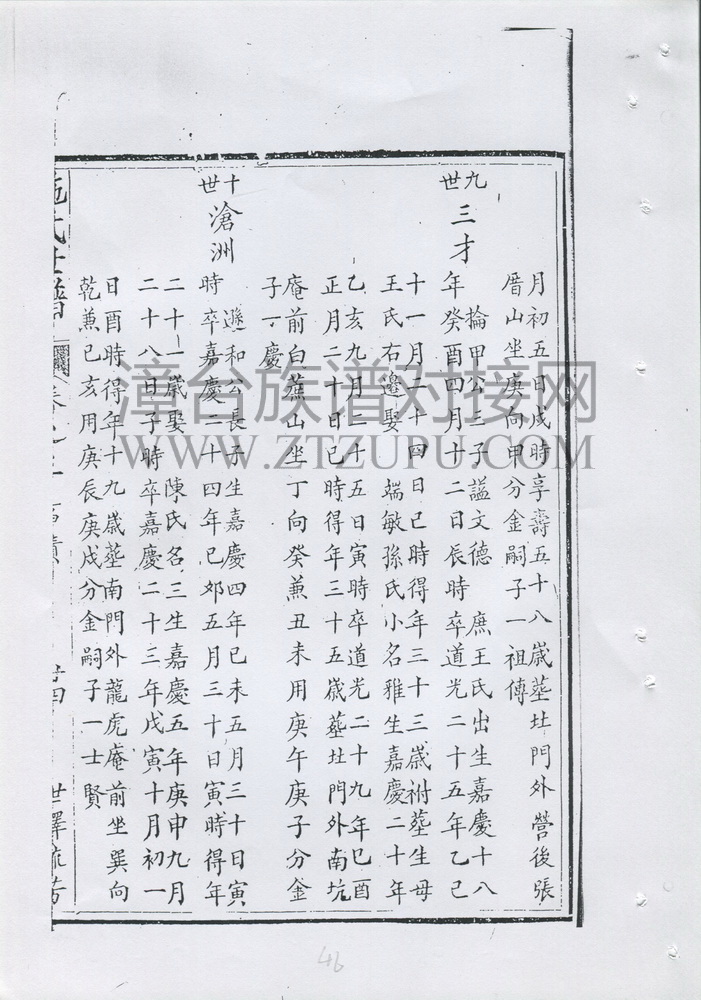 月初五日戌時享壽五十八歲塟北門外營後張
厝山坐庚向甲分金嗣子一祖傳
世九
三才
掄甲公三子謚文德 庶王氏出生嘉慶十八
年癸酉四月十二日辰時卒道光二十五年乙巳
十一月二十四日巳時得年三十三歲祔塟生母
王氏右邊娶 端敏孫氏小名雅生嘉慶二十年
乙亥九月二十五日寅時卒道光二十九年己酉
正月二十日巳時得年三十五歲塟北門外南坑
庵前白蕉山坐丁向癸兼丑未用庚午庚子分金
子一慶
世十
滄洲
遜和公長子生嘉慶四年己未五月三十日寅
時卒嘉慶二十四年己卯五月三十日寅時得年
二十一歲娶 陳氏名三生嘉慶五年庚申九月
二十八日子時卒嘉慶二十三年戊寅十月初一
日酉時得年十九歲塟南門外龍虎庵前坐巽向
乾兼巳亥用庚辰庚戌分金嗣子一士賢
氏 譜 卷 廿四 世澤流芳
漳台族谱对接网
WWW.ZTZUPU.COM
46